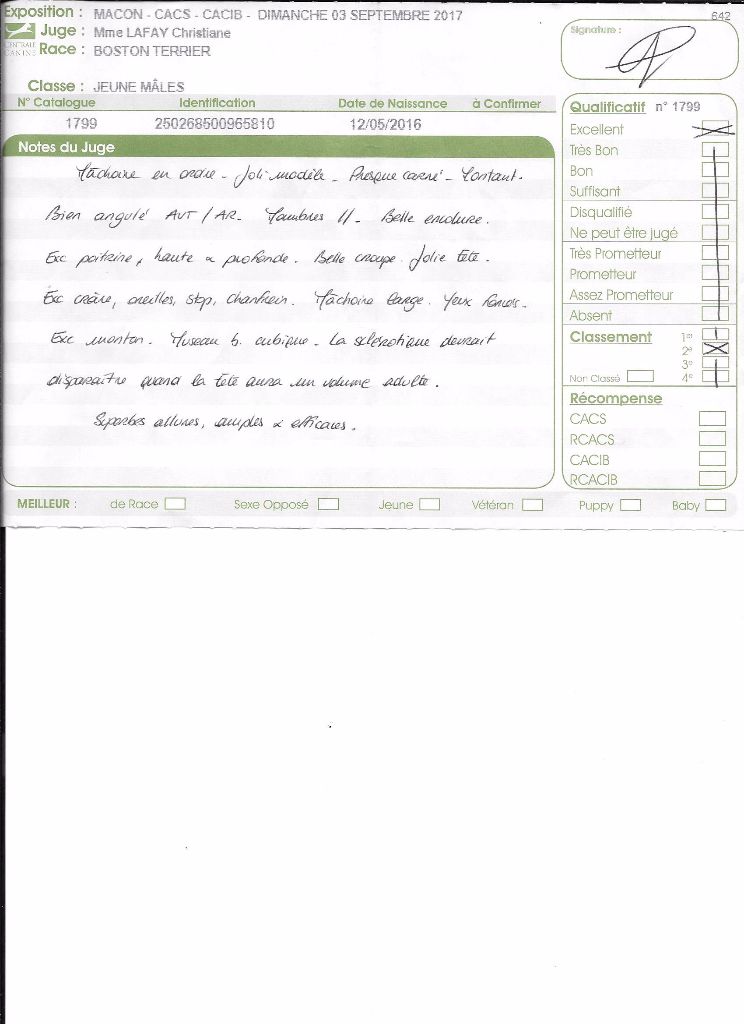 Exposition : MACON - CACS - CACIB - DIMANCHE 03 SEPTEMBRE 2017
642
Juge : Mme LAFAY Christiane
CENTRALE CANINE
Race : BOSTON TERRIER
Signature :
Classe : JEUNE MÂLES
N° Catalogue Identification Date de Naissance à Confirmer
1799 250268500965810 12/05/2016
Notes du Juge
Mâchoire en ordre - Joli modèle - Presque carré - Montant.
Bien angulé AVT / AR - Membres // - Belle encolure.
Exc poitrine, haute & profonde. Belle croupe. Jolie tête.
Exc crâne, oreilles, stop, chanfrein. Mâchoire large. Yeux foncés.
Exc menton. Museau b. cubique - La sclérotique devrait
disparaître quand la tête aura un volume adulte.
Superbes allures, amples & efficaces.
Qualificatif n° 1799
Excellent
Très Bon
Bon
Suffisant
Disqualifié
Ne peut être jugé
Très Prometteur
Prometteur
Assez Prometteur
Absent
Classement 1er
2e
3e
Non Classé 4e
Récompense
CACS
RCACS
CACIB
RCACIB
MEILLEUR : de Race Sexe Opposé Jeune Vétéran Puppy Baby